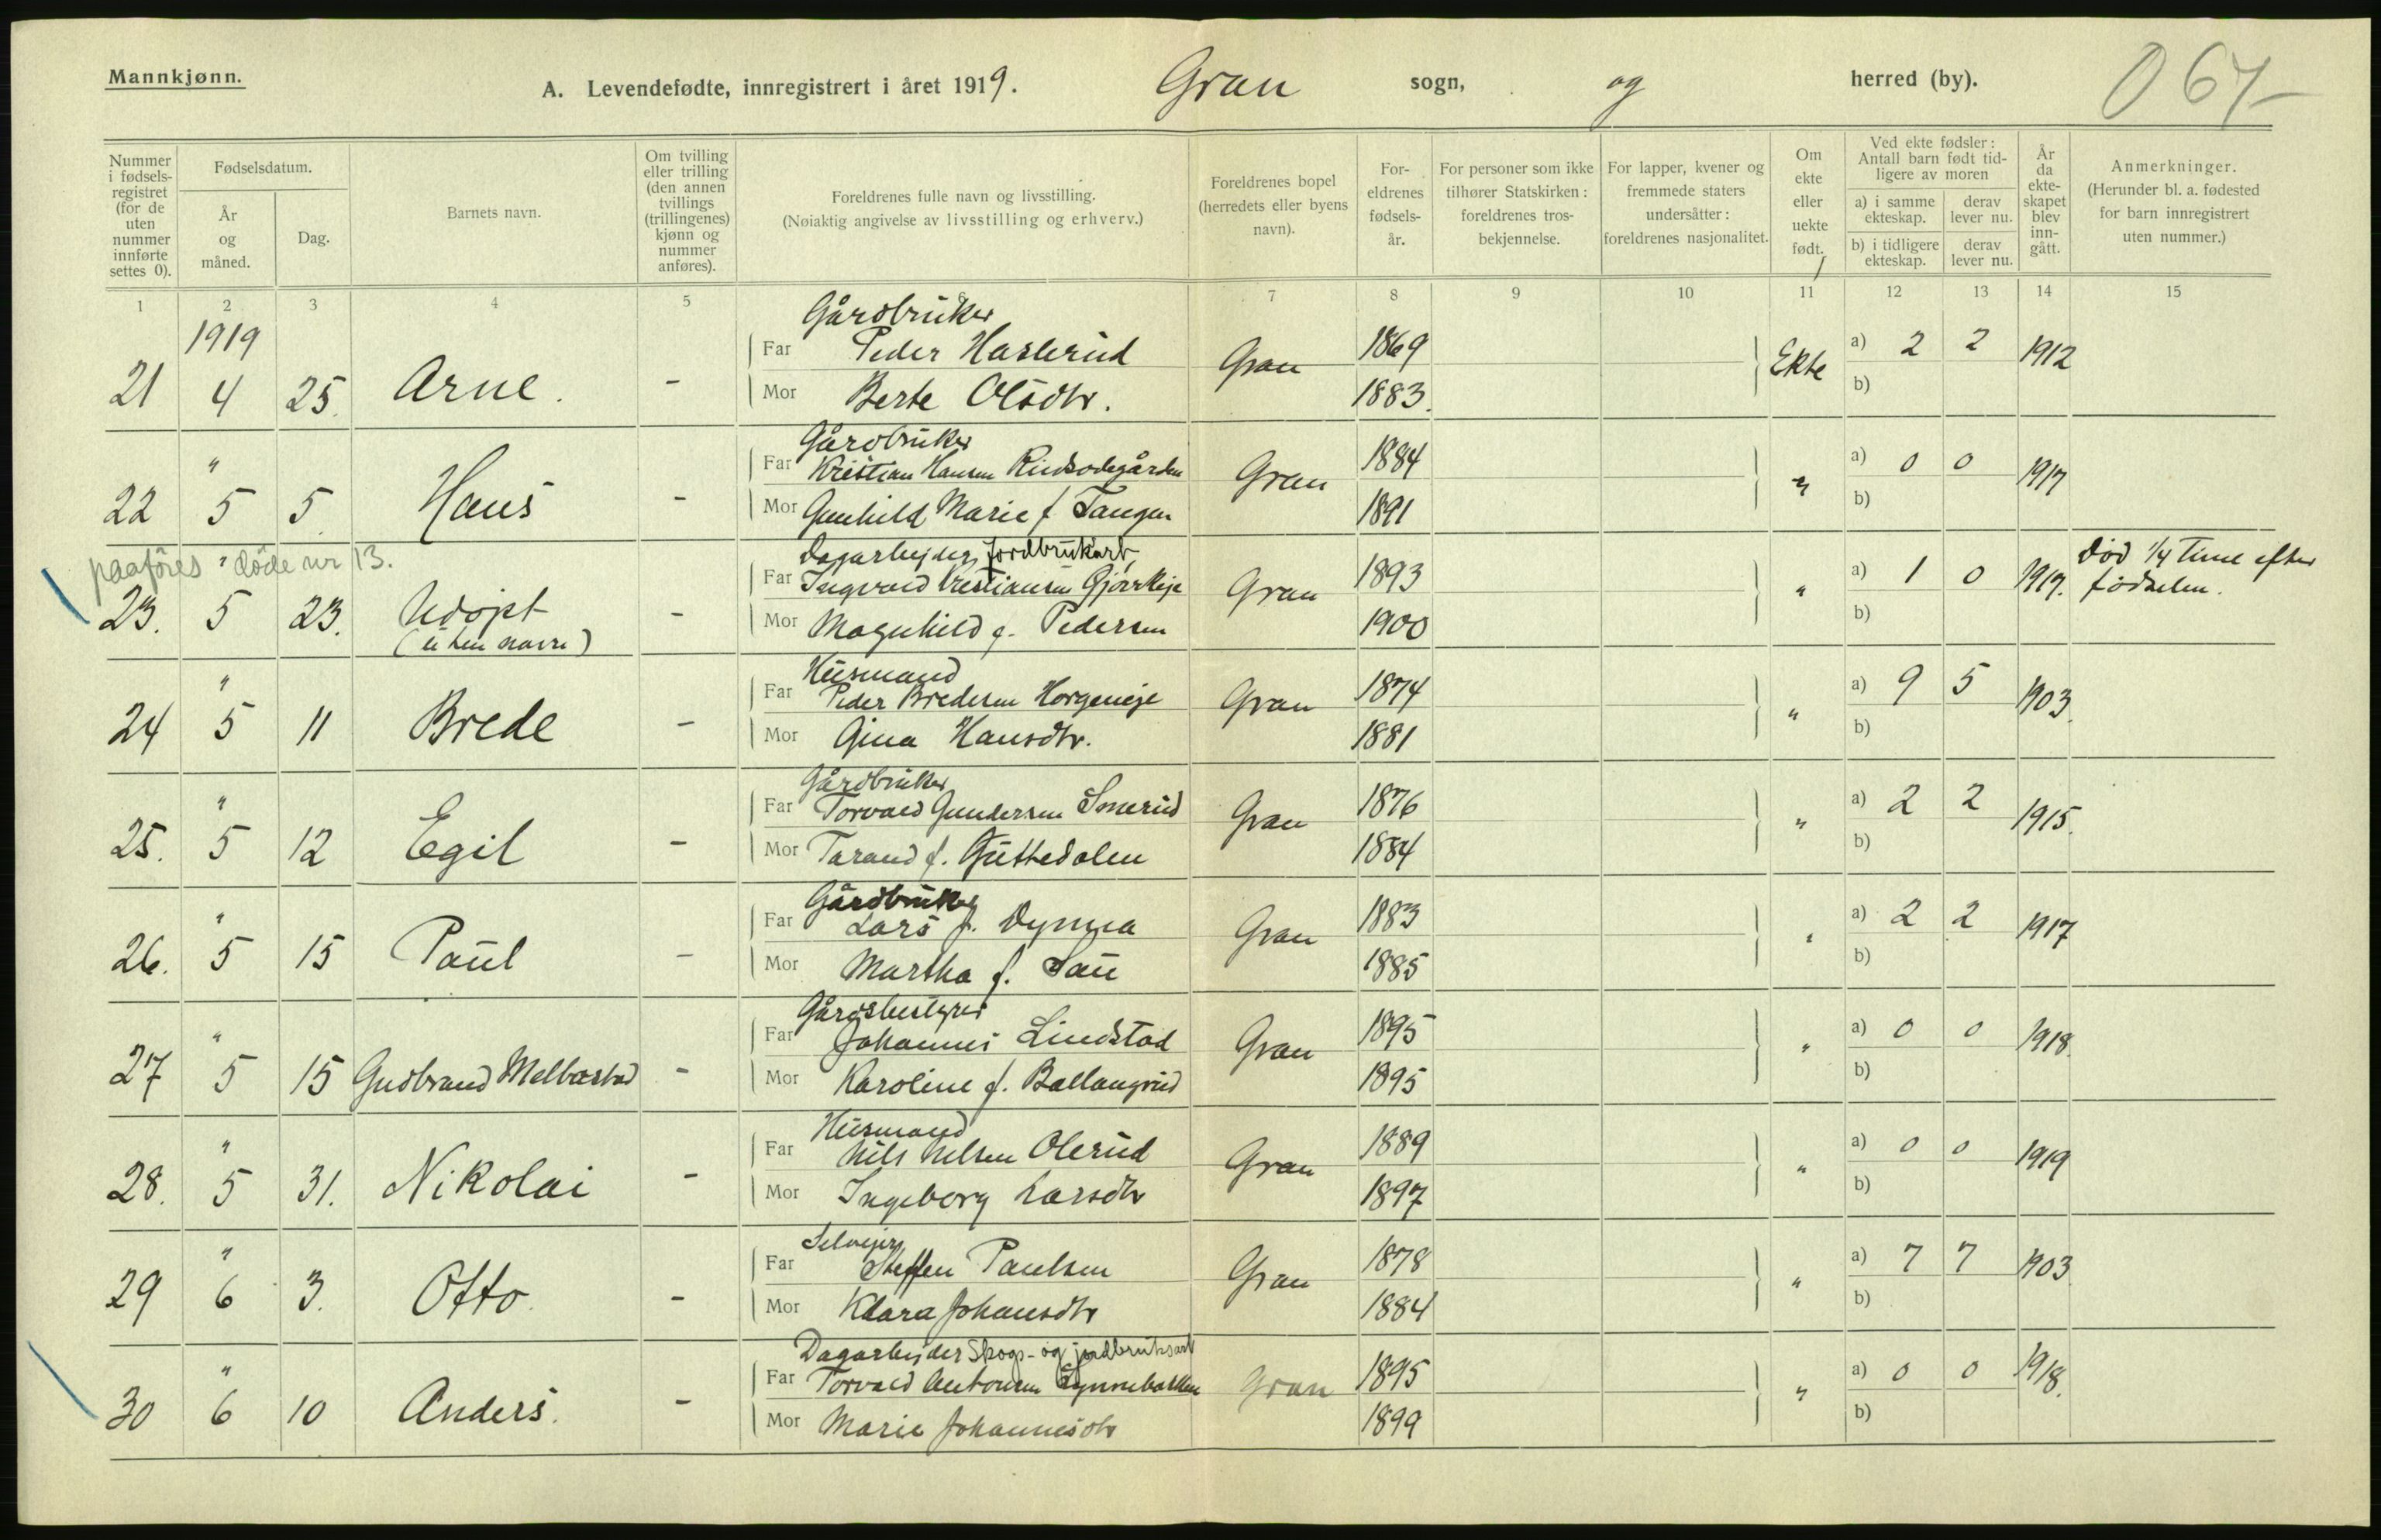 Mannkjønn.
A. Levendefødte, innregistrert i året 1919. Gran sogn, og herred (by). 067
Nummer i fødsels-registret (for de uten nummer innførte settes 0).
Fødselsdatum.
År og måned.
Dag.
Barnets navn.
Om tvilling eller trilling (den annen tvillings (trillingenes) kjønn og nummer anføres).
Foreldrenes fulle navn og livsstilling.
(Nøiaktig angivelse av livsstilling og erhverv.)
Foreldrenes bopel (herredets eller byens navn).
For-eldrenes fødsels-år.
For personer som ikke tilhører Statskirken: foreldrenes tros-bekjennelse.
For lapper, kvener og fremmede staters undersåtter: foreldrenes nasjonalitet.
Om ekte eller uekte født.
Ved ekte fødsler: Antall barn født tid-ligere av moren
a) i samme ekteskap. derav lever nu.
b) i tidligere ekteskap. derav lever nu.
År da ekte-skapet blev inn-gått.
Anmerkninger.
(Herunder bl. a. fødested for barn innregistrert uten nummer.)
1 2 3 4 5 6 7 8 9 10 11 12 13 14 15
1919
Gårdbruker
Far Peder Haslerud 1869 a) 2 2
21 4 25. Arne. - Gran Ekte 1912
Mor Berte Olsdtr. 1883. b)
Gårdbruker
" Far Kristian Hansen Rindsodegården 1884 a) 0 0
22 5 5 Hans - Gran " 1917
Mor Gunhild Marie f Tangen 1891 b)
paaføres " døde nr 13.
Dagarbeider, jordbrukarb,
Far Ingvald Kristiansen Gjørkeje 1893 a) 1 0 Død 1/4 Time efter
23. 5 23. Udøpt - Gran " 1917. fødselen.
(uten navn) Mor Magnhild f. Pedersen 1900 b)
Husmand
" Far Peder Bredesen Horgeneje 1874 a) 9 5
24 5 11 Brede - Gran " 1903
Mor Gina Hansdtr. 1881 b)
Gårdbruker
" Far Torvald Gundersen Smerud 1876 a) 2 2
25. 5 12 Egil - Gran " 1915.
Mor Tarand f. Guttedalen 1884 b)
Gårdbruker
" Far Lars f. Dynna 1883 a) 2 2
26. 5 15 Paul - Gran " 1917
Mor Martha f. Sau 1885 b)
Gårdsbestyrer
" Far Johannes Lindstad 1895 a) 0 0
27 5 15 Gudbrand Melbostad - Gran " 1918.
Mor Karoline f. Ballangrud 1895 b)
Husmand
" Far Nils Nilsen Olerud 1889 a) 0 0
28. 5 31. Nikolai - Gran " 1919
Mor Ingeborg Larsdtr 1897 b)
Selvejer
" Far Steffen Paulsen 1878 a) 7 7
29 6 3. Otto - Gran " 1903
Mor Klara Johansdtr 1884 b)
Dagarbeider Skogs- og jordbruksarb
" Far Torvald Antonsen Lynnebakken 1895 a) 0 0
30 6 10 Anders. - Gran " 1918.
Mor Marie Johannesdtr 1899 b)